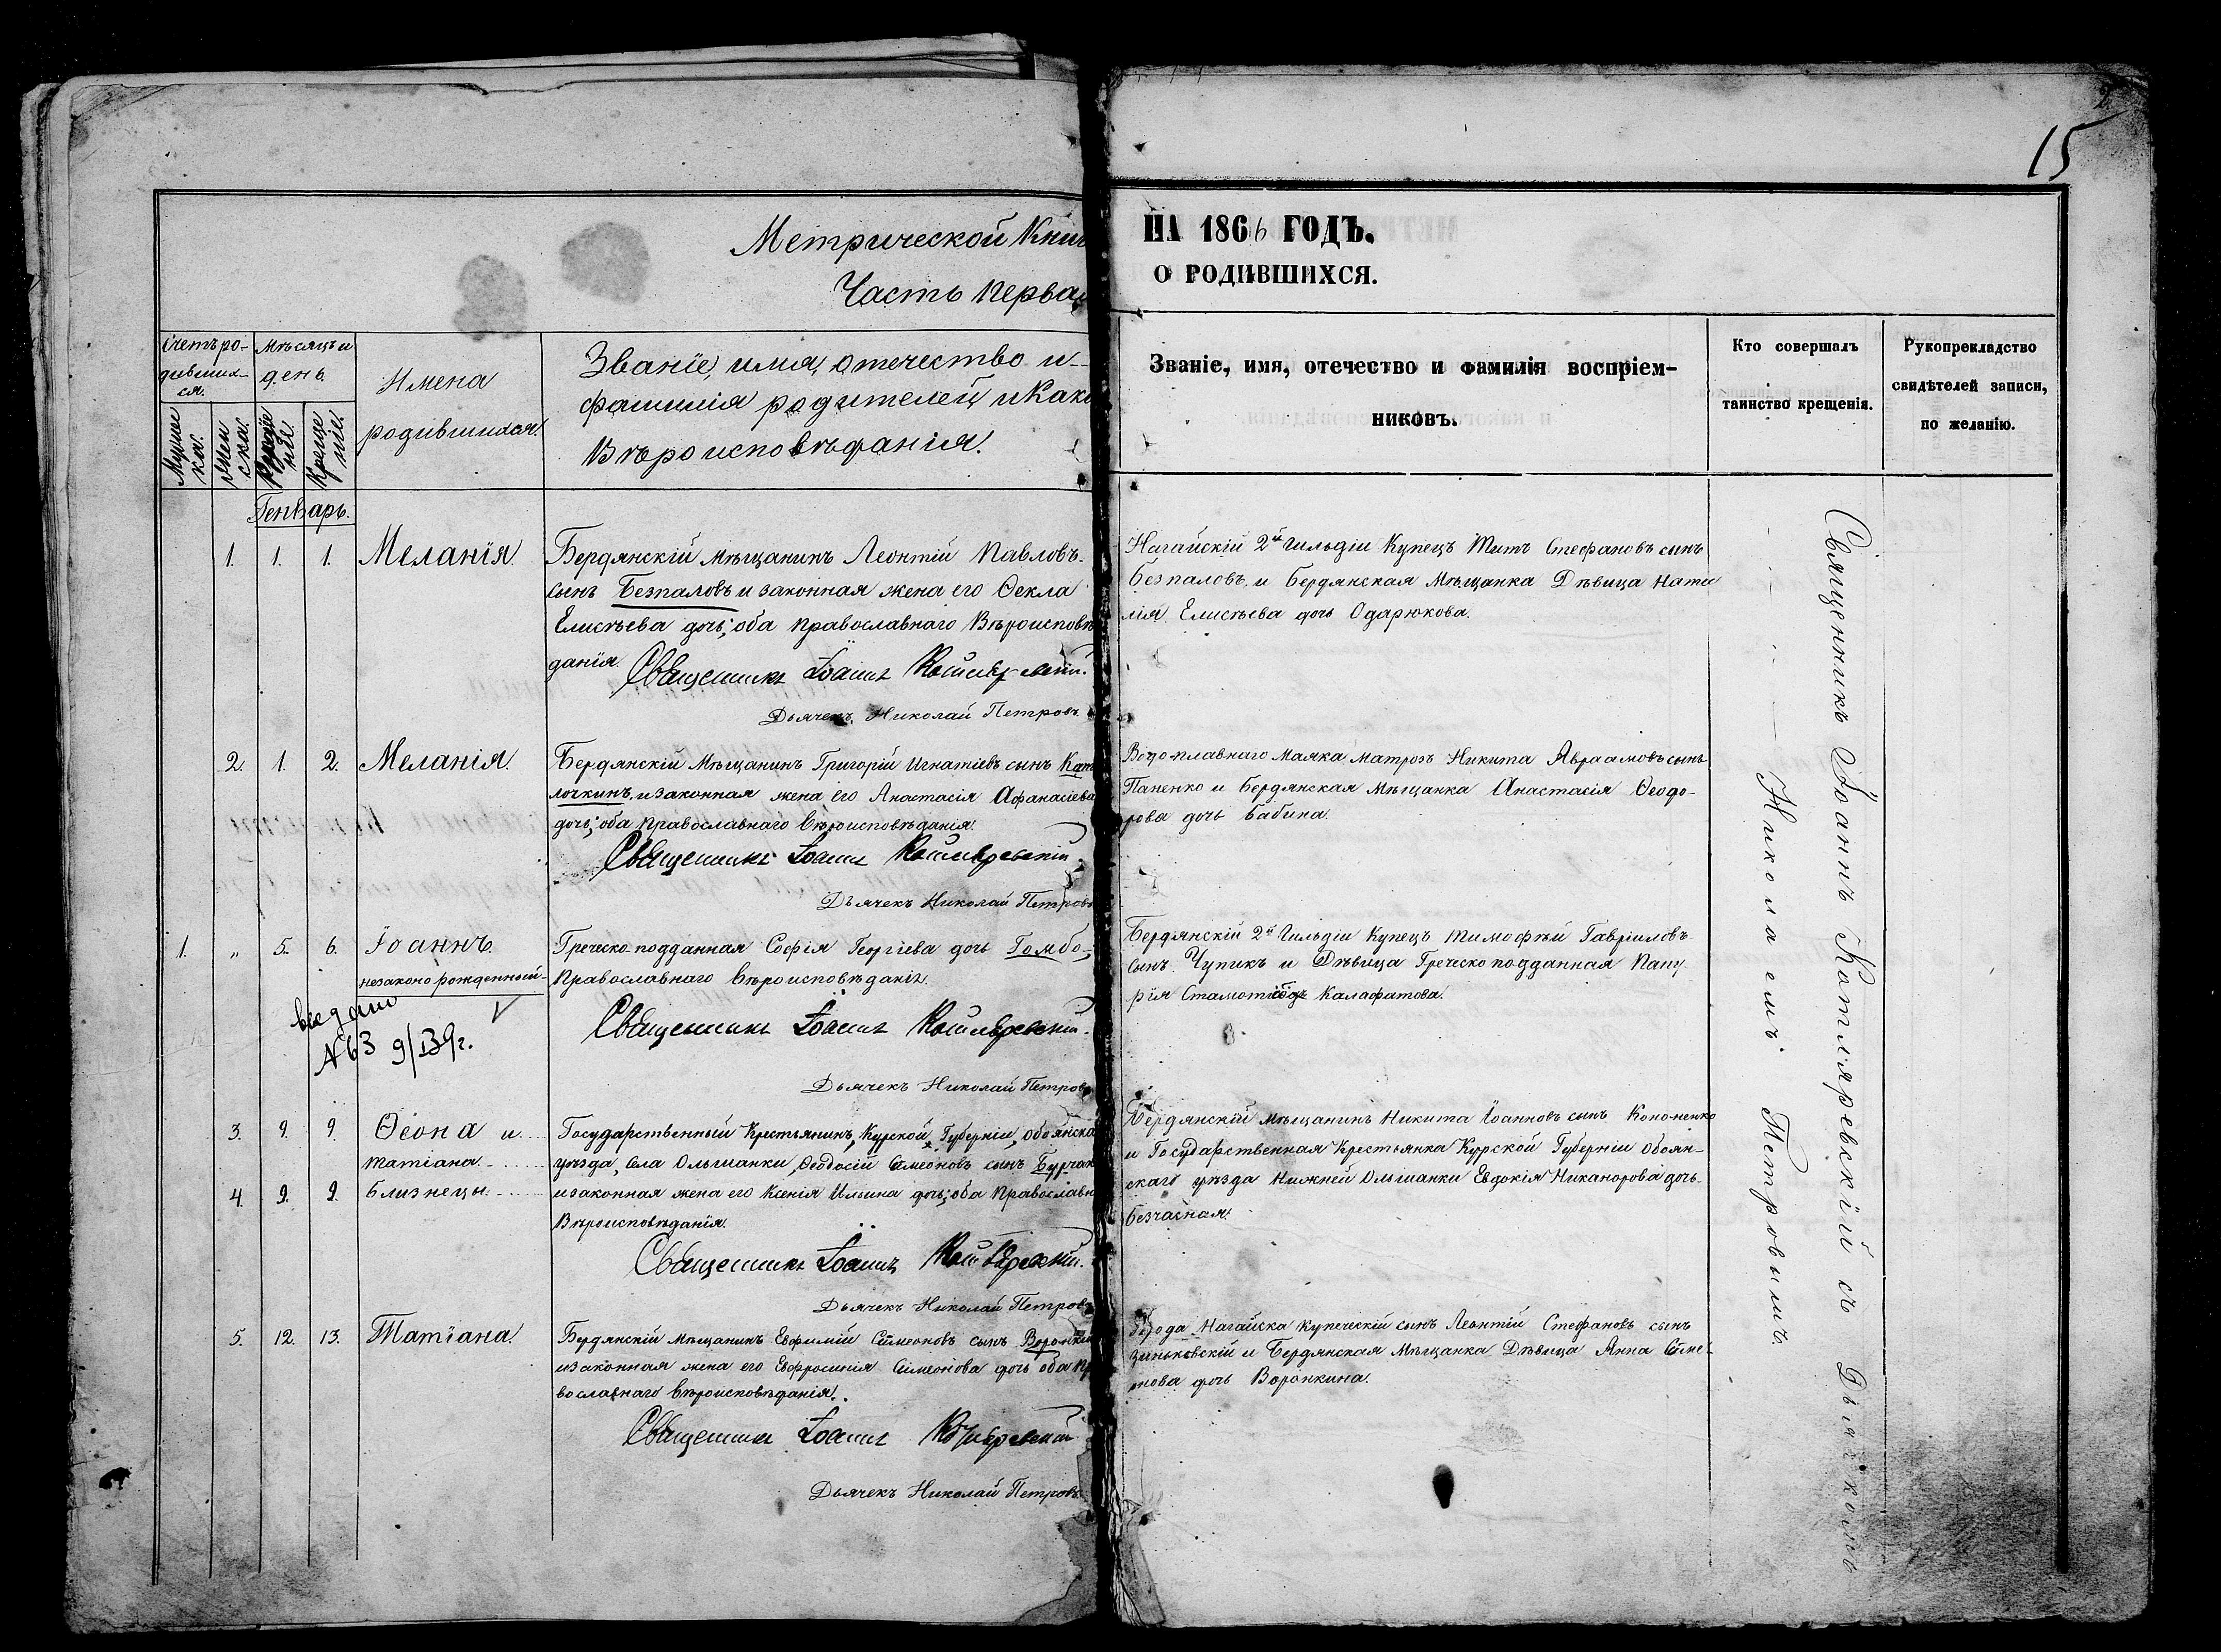 15
Метрической Книг
Часть первая
НА 1866 ГОДЪ.
О РОДИВШИХСЯ.
Счетъ ро-
дивших-
ся.
Мужес
ка.
Женс
ска.
Мѣсяцъ и
день.
Рожде
ніе.
Креще
ніе.
Имена
родившихся.
Званіе, имя, отечество и
фамилія родителей, и како
Вѣроисповѣданія.
Званіе, имя, отечество и фамилія воспріем-
никовъ.
Кто совершалъ
таинство крещенія.
Рукопрекладство
свидѣтелей записи,
по желанію.
Генварь.
1. 1. 1. Меланія.
Бердянскій мѣщанинъ Леонтій Павловъ
сынъ Безпаловъ и законная жена его Ѳекла
Елисѣева дочь; оба православнаго Вѣроисповѣ
данія.
Священникъ Іоаннъ Котляревскій.
Дьячекъ Николай Петровъ
Нагайскій 2й гильдіи Купецъ Титъ Стефановъ сынъ
Безпаловъ, и Бердянская Мѣщанка Дѣвица Ната
лія Елисѣева дочь Одарюкова.
2. 1. 2. Меланія.
Бердянскій Мѣщанинъ Григорій Игнатіевъ сынъ
лочкинъ, и законная жена его Анастасія Афанасіева
дочь; оба православнаго вѣроисповѣданія.
Священникъ Іоаннъ Котляревскій
Дьячекъ Николай Петровъ
маяка матрозъ Никита Авраамовъ сынъ
Паненко и Бердянская Мѣщанка Анастасія Ѳеодо-
рова дочь Бабина.
1. „ 5. 6. Іоаннъ.
незаконорожденный
Греческо подданная Софія Георгіева дочь Гомбо,
православнаго вѣроисповѣданія.
Священникъ Іоаннъ Котляревскій.
Дьячекъ Николай Петровъ
Бердянскій 2й Гильдіи Купецъ Тимофѣй Гавріиловъ
сынъ Чупикъ и Дѣвица Греческо подданная
Калафатова.
N 63
3. 9. 9. Ѳеона и
Татіана
4. 9. 9. Близнецы.
Государственный Крестьянинъ, Курской Губерніи, Обоянска
уѣзда, села Ольшанки, Ѳеодосій Сѵмеоновъ сынъ Бурчак
и законная жена его Ксенія Ильина дочь; оба православн
Вѣроисповѣданія.
Священникъ Іоаннъ Котляревскій.
Дьячекъ Николай Петровъ
Бердянскій мѣщанинъ Никита Іоанновъ сынъ Кононенко
и Государственная Крестьянка Курской Губерніи Обоян-
скаго уѣзда Нижней Ольшанки Евдокія Никанорова дочь
Безчасная.
5. 12. 13. Татіана.
Бердянскій мѣщанинъ Евфимій Сѵмеоновъ сынъ Воронкин
и законная жена его Евфросинія Симеонова дочь оба пр
вославнаго вѣроисповѣданія.
Священникъ Іоаннъ Котляревскій
Дьячекъ Николай Петровъ
Города Нагайска купеческій сынъ Леонтій Стефановъ сынъ
Зиньковскій и Бердянская Мѣщанка Дѣвица Анна Сѵме
нова дочь Воронкина.
Священникъ Іоаннъ Котляревскій съ Дьячкомъ
Николаемъ Петровымъ.